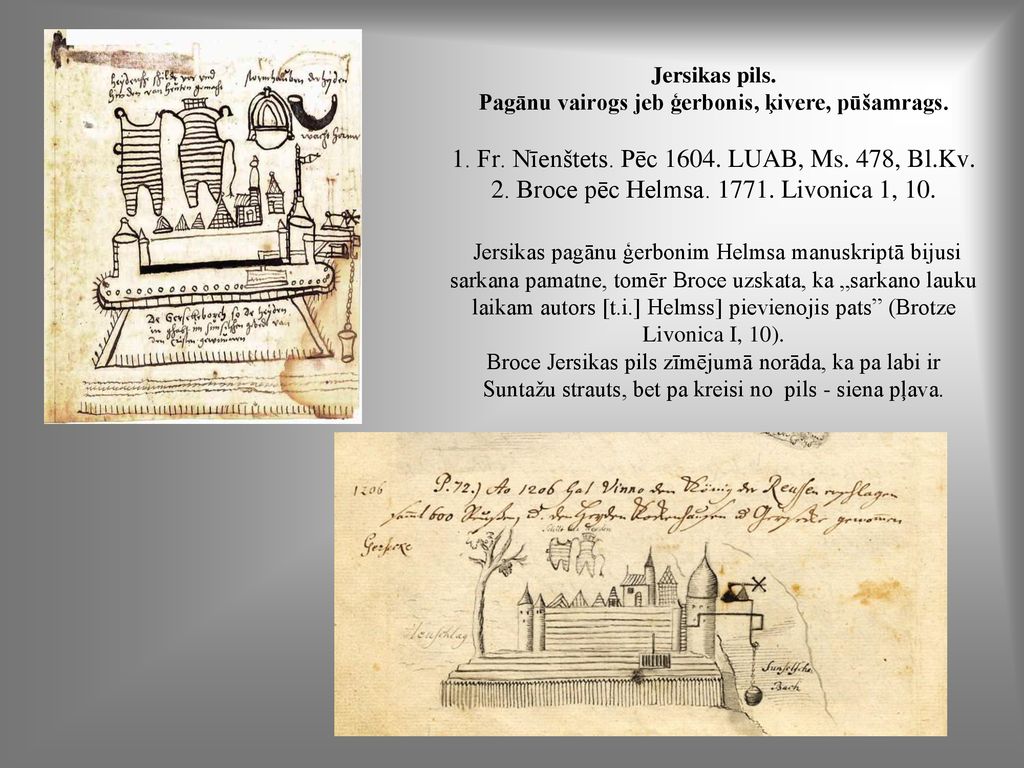 Jersikas pils.
Pagānu vairogs jeb ģerbonis, ķivere, pūšamrags.
1. Fr. Nīenštets. Pēc 1604. LUAB, Ms. 478, Bl.Kv.
2. Broce pēc Helmsa. 1771. Livonica 1, 10.
Jersikas pagānu ģerbonim Helmsa manuskriptā bijusi
sarkana pamatne, tomēr Broce uzskata, ka „sarkano lauku
laikam autors [t.i.] Helmss] pievienojis pats” (Brotze
Livonica I, 10).
Broce Jersikas pils zīmējumā norāda, ka pa labi ir
Suntažu strauts, bet pa kreisi no pils - siena pļava.
heydensche schilde vor vnd
stormhauben der heyden
wacht horne
De Gerseborch so de heyden
1206 P.72.) Ao 1206 hat Vinno den König der Reussen erschlagen
sammt 600 Reussen, d. den Heyden Kokenhausen d Gerseke genommen
Gerseke
Heuschlag
Sunselsche
Bach